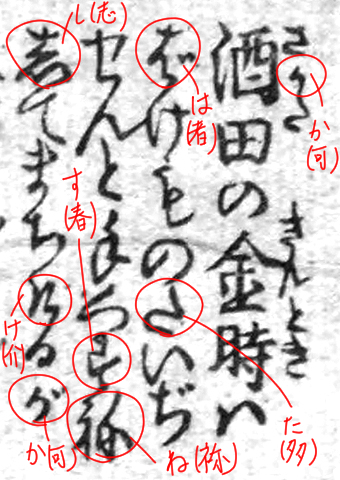 さかた きんとき
酒田の金時ハ
ばけものたいぢ
せんと手ぐすね
してまちけるが
か(可)
は(者)
た(多)
ね(祢)
す(春)
し(志)
け
か(可)